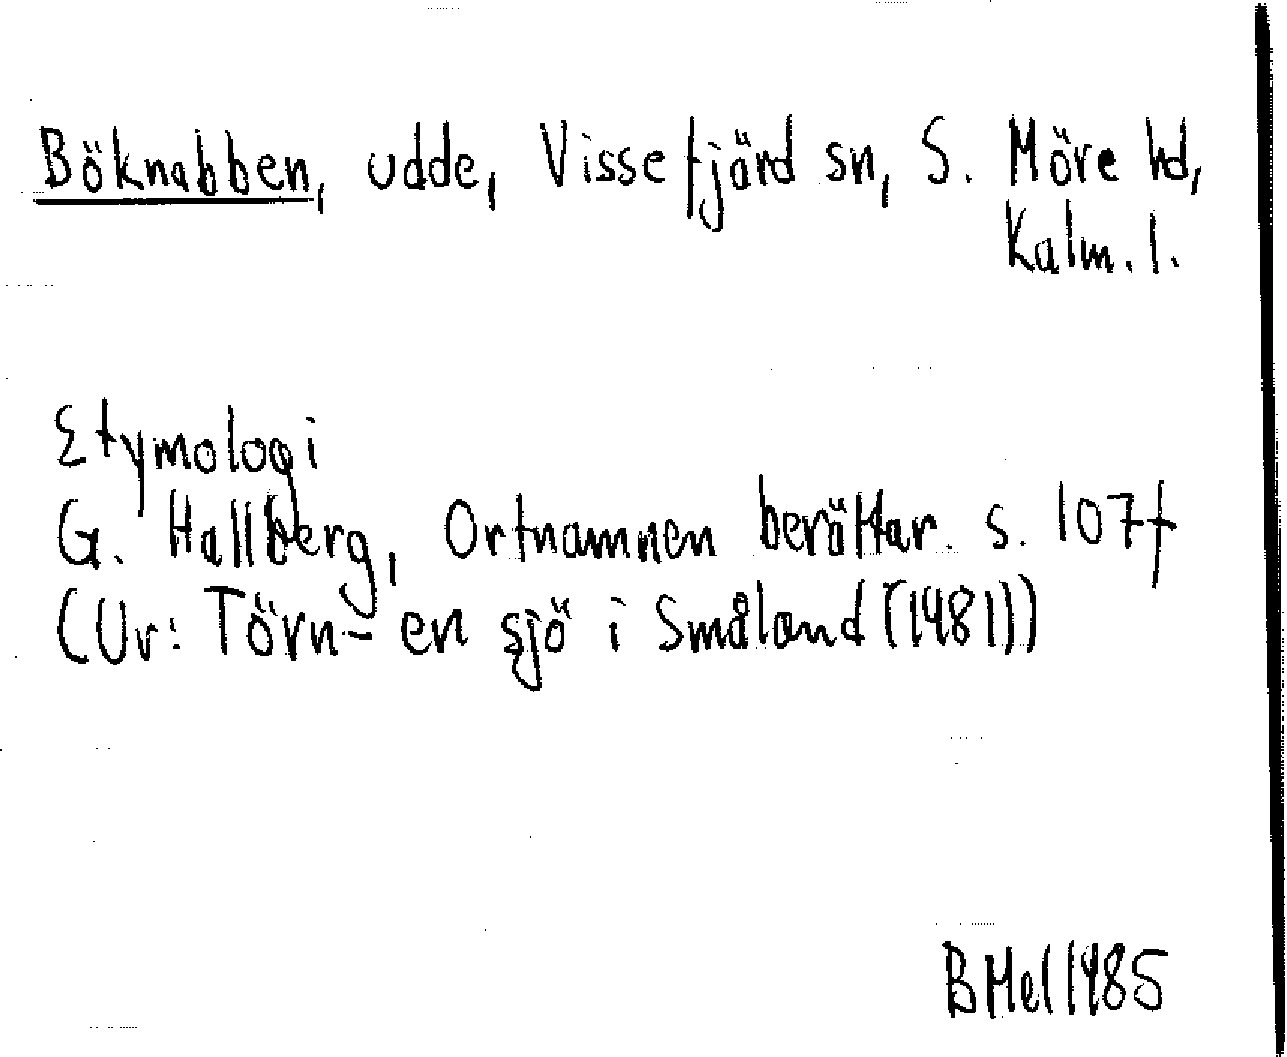 Böknabben, udde, Vissefjärd sn, S. Möre hd,
Kalm. l.
Etymologi
G. Hallberg, Ortnamnen berättar. s. 107f
(Ur: Törn- en sjö i Småland (1981))
BMel 1985